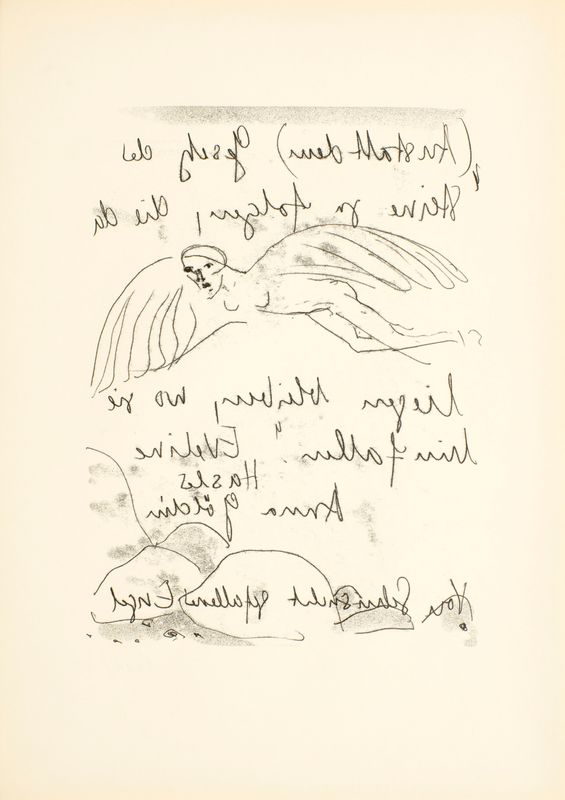 (Anstatt dem) Gesetz des
"Steine zu folgen, die da
liegen bleiben, wo sie
hinfallen". Eveline
Hasler
Anna Göldin
Von Sehnsucht gefallener Engel